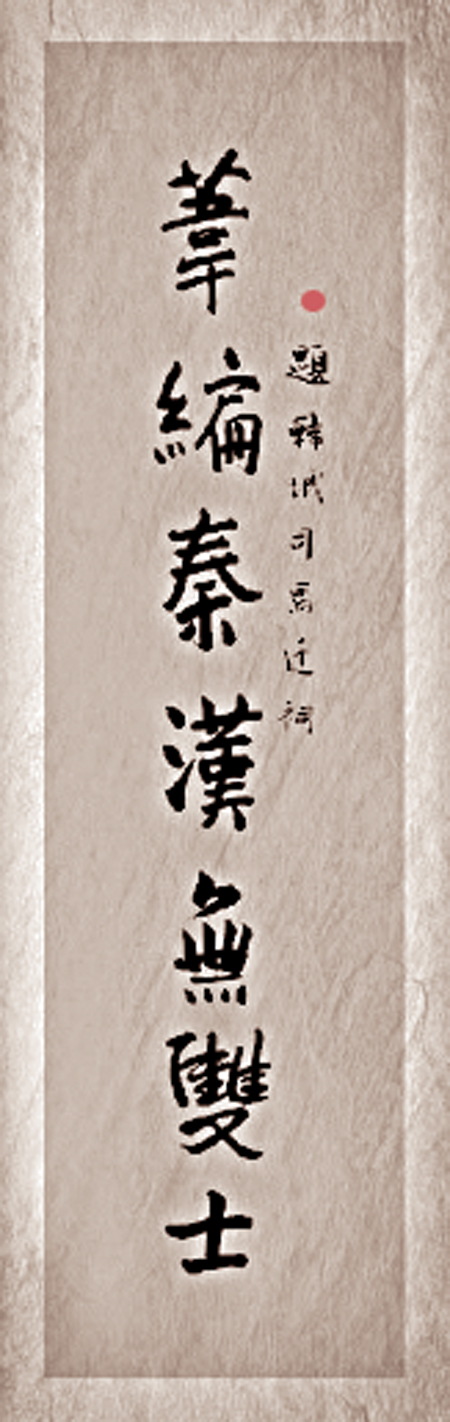 題韓城司馬迁祠
葦編秦漢無雙士